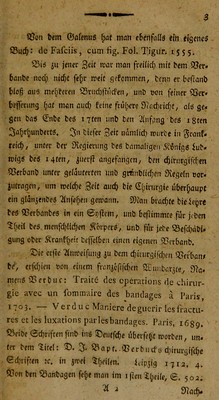 3
Von dem Galenus hat man ebenfalls ein eigenes
Buch: de Fasciis, cum fig. Fol. Tigur. 1555.
Bis zu jener Zeit war man freilich mit dem Ver-
bande noch nicht sehr weit gekommen, denn er bestand
bloß aus mehreren Bruchstücken, und von seiner Ver-
besserung hat man auch keine frühere Nachricht, als ge-
gen das Ende des 17ten und den Anfang des 18ten
Jahrhunderts. In dieser Zeit nämlich wurde in Frank-
reich, unter der Regierung des damaligen Königs Lud-
wigs des 14ten, zuerst angefangen, den chirurgischen
Verband unter geläuterten und gründlichen Regeln vor-
zutragen, um welche Zeit auch die Chirurgie überhaupt
ein glänzendes Ansehen gewann. Man brachte die Lehre
des Verbandes in ein System, und bestimmte für jeden
Theil des menschlichen Körpers, und für jede Beschädi-
gung oder Krankheit desselben einen eigenen Verband.
Die erste Anweisung zu dem chirurgischen Verban-
de, erschien von einem französischen Wundarzte, Na-
mens Verduc: Traité des operations de chirur-
gie avec un sommaire des bandages à Paris,
1703. — Verduc Manière de guerir les fractu-
res et les luxations par les bandages. Paris, 1689.
Beide Schriften sind ins Deutsche übersetzt worden, un-
ter dem Titel: D. J. Bapt. Verducks chirurgische
Schriften ꝛc. in zwei Theilen. Leipzig 1712, 4.
Von den Bandagen sehe man im 1sten Theile, S. 502.
A 2 Nach-